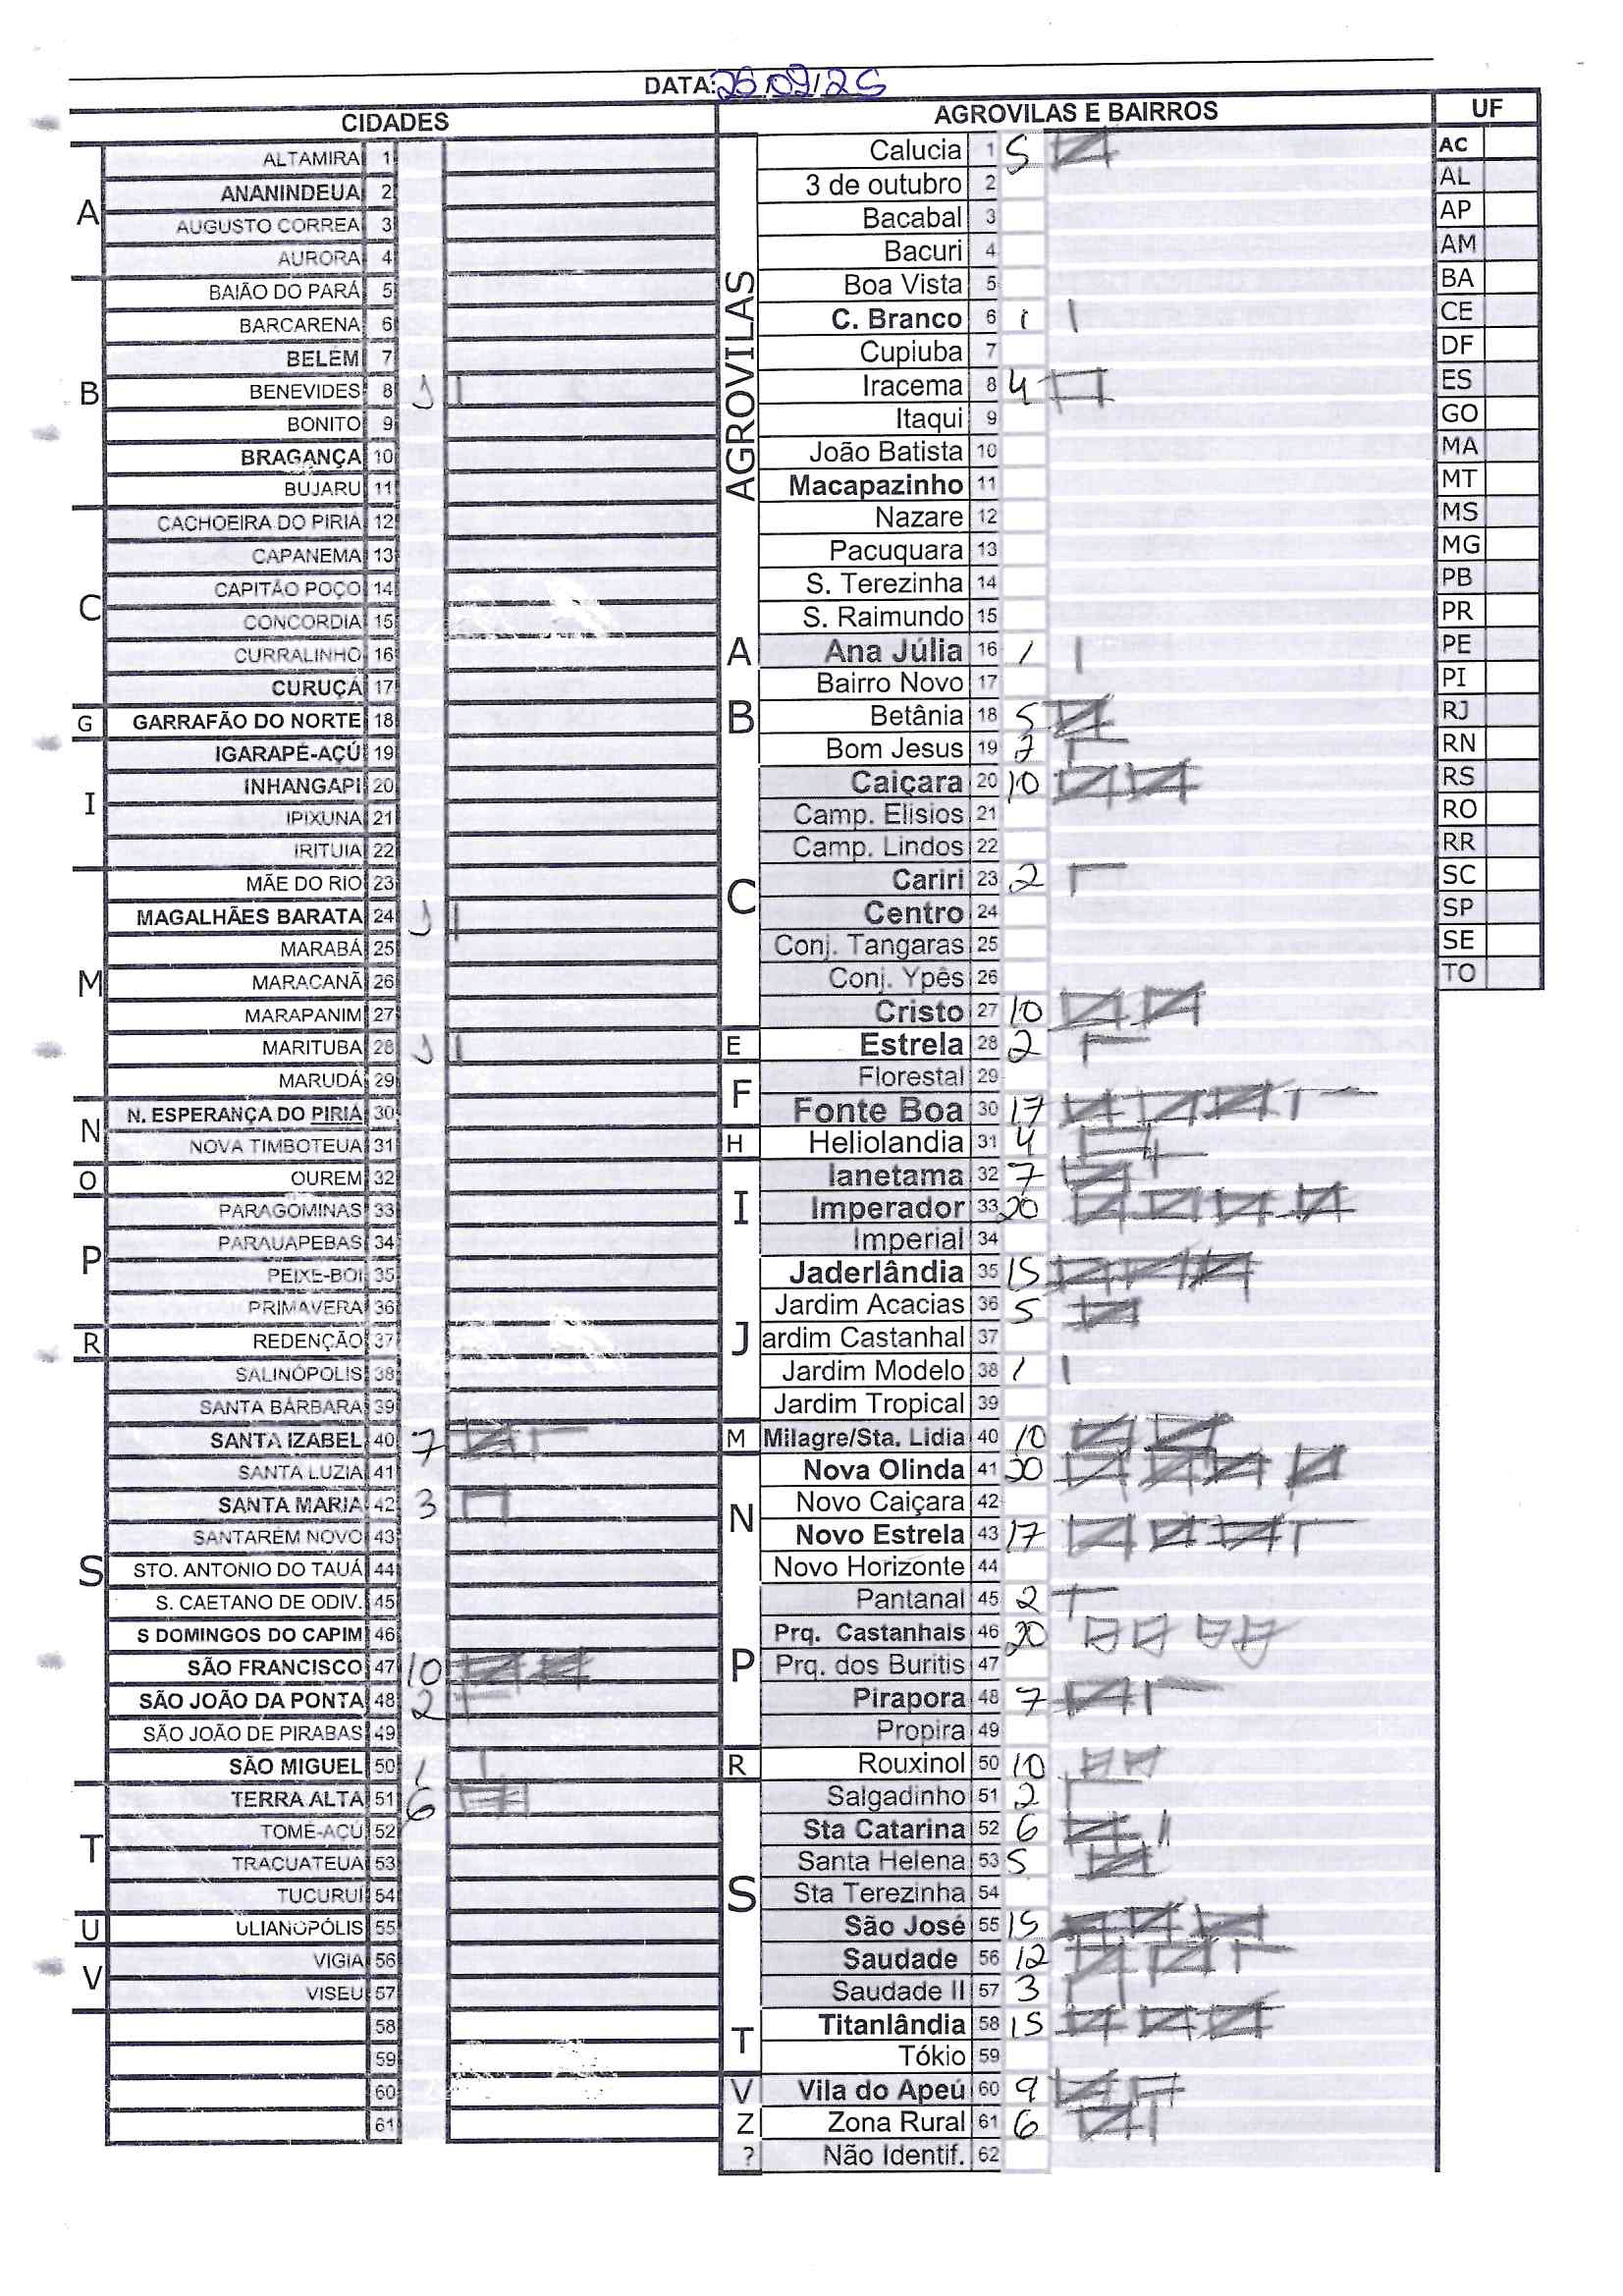 DATA: 26/09/25
CIDADES
A
ALTAMIRA 1
ANANINDEUA 2
AUGUSTO CORREA 3
AURORA 4
B
BAIÃO DO PARÁ 5
BARCARENA 6
BELÉM 7
BENEVIDES 8 1
BONITO 9
BRAGANÇA 10
BUJARU 11
C
CACHOEIRA DO PIRIA 12
CAPANEMA 13
CAPITÃO POÇO 14
CONCORDIA 15
CURRALINHO 16
CURUÇÁ 17
G
GARRAFÃO DO NORTE 18
I
IGARAPÉ-AÇÚ 19
INHANGAPI 20
IPIXUNA 21
IRITUIA 22
M
MÃE DO RIO 23
MAGALHÃES BARATA 24 1
MARABÁ 25
MARACANÃ 26
MARAPANIM 27
MARITUBA 28 1
MARUDÁ 29
N
N. ESPERANÇA DO PIRIÁ 30
NOVA TIMBOTEUA 31
O
OUREM 32
P
PARAGOMINAS 33
PARAUAPEBAS 34
PEIXE-BOI 35
PRIMAVERA 36
R
REDENÇÃO 37
S
SALINÓPOLIS 38
SANTA BÁRBARA 39
SANTA IZABEL 40 7
SANTA LUZIA 41
SANTA MARIA 42 3
SANTARÉM NOVO 43
STO. ANTONIO DO TAUÁ 44
S. CAETANO DE ODIV. 45
S DOMINGOS DO CAPIM 46
SÃO FRANCISCO 47 10
SÃO JOÃO DA PONTA 48 2
SÃO JOÃO DE PIRABAS 49
SÃO MIGUEL 50 1
T
TERRA ALTA 51 6
TOMÉ-AÇU 52
TRACUATEUA 53
TUCURUÍ 54
U
ULIANÓPÓLIS 55
V
VIGIA 56
VISEU 57
58
59
60
61
AGROVILAS E BAIRROS
AGROVILAS
Calucia 1 5
3 de outubro 2
Bacabal 3
Bacuri 4
Boa Vista 5
C. Branco 6 1
Cupiuba 7
Iracema 8 4
Itaqui 9
João Batista 10
Macapazinho 11
Nazare 12
Pacuquara 13
S. Terezinha 14
S. Raimundo 15
A
Ana Júlia 16 1
Bairro Novo 17
B
Betânia 18 5
Bom Jesus 19 2
C
Caiçara 20 10
Camp. Elisios 21
Camp. Lindos 22
Cariri 23 2
Centro 24
Conj. Tangaras 25
Conj. Ypês 26
Cristo 27 10
E
Estrela 28 2
F
Florestal 29
Fonte Boa 30 17
H
Heliolandia 31 4
I
Ianetama 32 7
Imperador 33 20
Imperial 34
J
Jaderlândia 35 15
Jardim Acacias 36 5
ardim Castanhal 37
Jardim Modelo 38 1
Jardim Tropical 39
M
Milagre/Sta. Lidia 40 10
N
Nova Olinda 41 20
Novo Caiçara 42
Novo Estrela 43 17
Novo Horizonte 44
P
Pantanal 45 2
Prq. Castanhais 46 20
Prq. dos Buritis 47
Pirapora 48 7
Propira 49
R
Rouxinol 50 10
S
Salgadinho 51 2
Sta Catarina 52 6
Santa Helena 53 5
Sta Terezinha 54
São José 55 15
Saudade 56 12
Saudade II 57 3
T
Titanlândia 58 15
Tókio 59
V
Vila do Apeú 60 9
Z
Zona Rural 61 6
?
Não Identif. 62
UF
AC
AL
AP
AM
BA
CE
DF
ES
GO
MA
MT
MS
MG
PB
PR
PE
PI
RJ
RN
RS
RO
RR
SC
SP
SE
TO